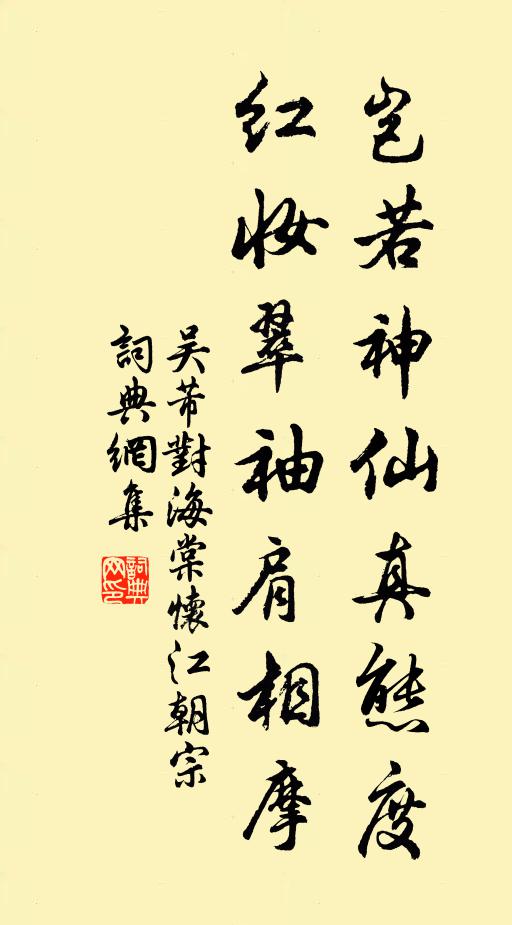 岂若神仙真態度
红妝翠袖肩相摩
吴芾對海棠懷江朝宗
詞典網集
詞典网印